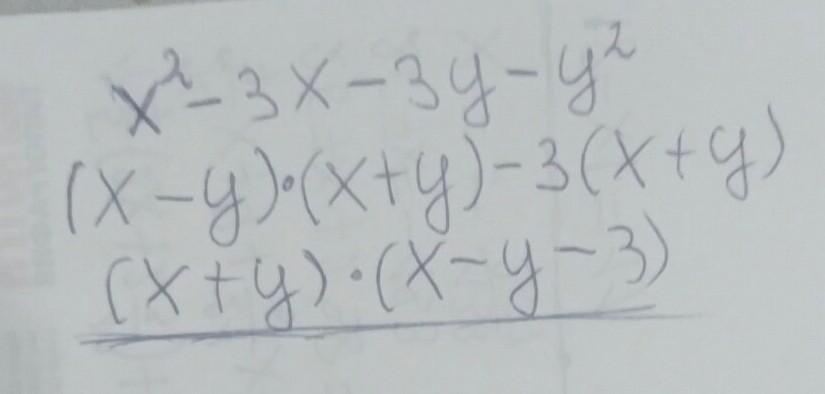 x² - 3x - 3y - y²
(x - y)·(x + y) - 3(x + y)
(x + y)·(x - y - 3)